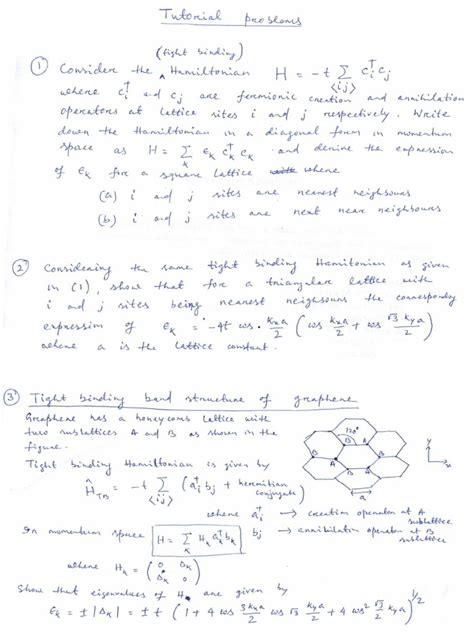 Tutorial problems
(tight binding)
① Consider the Hamiltonian H = -t ∑ c_i^† c_j
<ij>
where c_i^† and c_j are fermionic creation and annihilation
operators at lattice sites i and j respectively. Write
down the Hamiltonian in a diagonal form in momentum
space as H = ∑_k ε_k c_k^† c_k and derive the expression
of ε_k for a square lattice where
(a) i and j sites are nearest neighbours
(b) i and j sites are next near neighbours
② Considering the same tight binding Hamiltonian as given
in (1), show that for a triangular lattice with
i and j sites being nearest neighbours the corresponding
expression of ε_k = -4t cos k_x a/2 (cos k_x a/2 + cos √3 k_y a/2)
where a is the lattice constant.
③ Tight binding band structure of graphene
Graphene has a honeycomb lattice with
two sublattices A and B as shown in the
figure.
120°
B A
B B
A A
B A
a
y
x
Tight binding Hamiltonian is given by
Ĥ_TB = -t ∑_<ij> (a_i^† b_j + hermitian conjugate)
where a_i^† → creation operator at A sublattice
b_j → annihilation operator at B sublattice
In momentum space H = ∑_k H_k a_k^† b_k
where H_k = (0 Δ_k
Δ_k 0)
Show that eigenvalues of H_k are given by
ε_k = ± |Δ_k| = ± t (1 + 4 cos 3k_x a/2 cos √3 k_y a/2 + 4 cos² √3/2 k_y a)^1/2